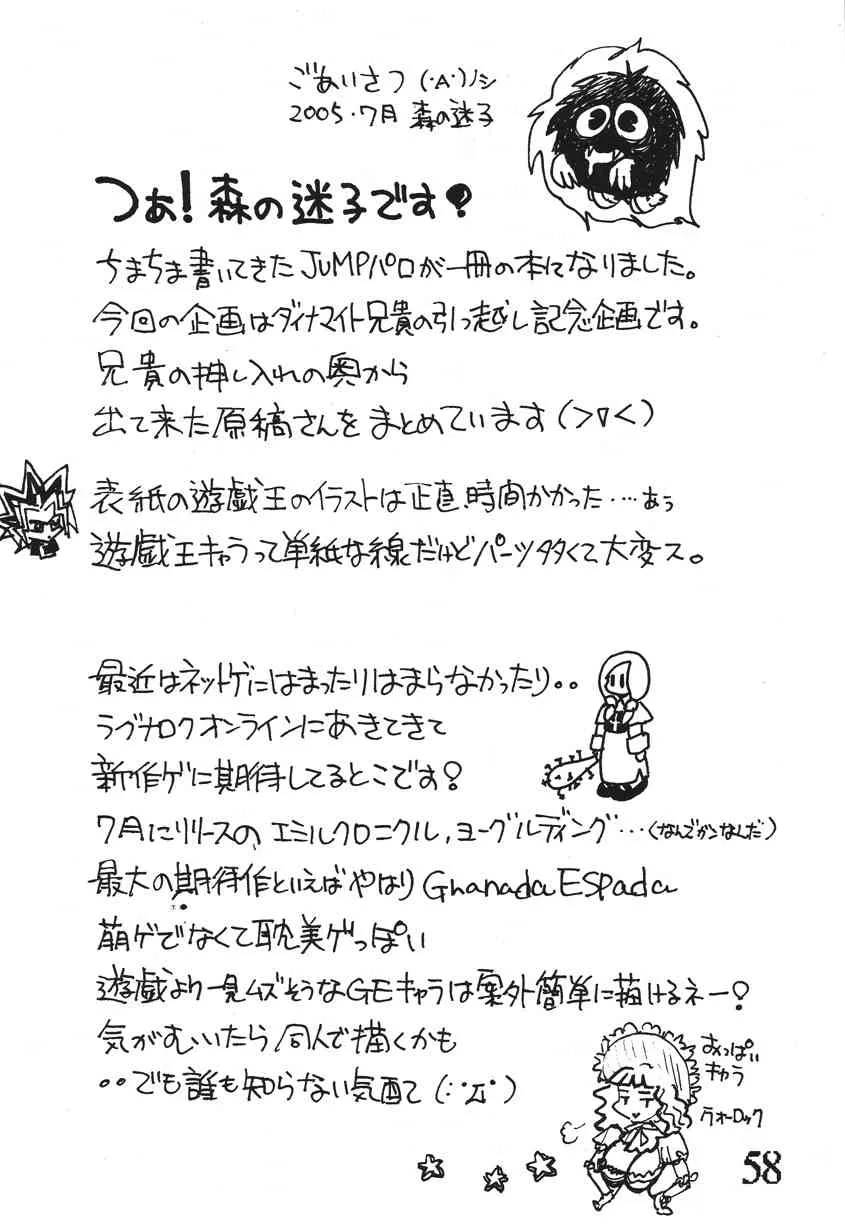 ごあいさつ (・A・)ノシ
2005・7月 森の迷子
つぁ!森の迷子です?
ちまちま書いてきたJUMPパロが一冊の本になりました。
今回の企画はダイナマイト兄貴の引っ越し記念企画です。
兄貴の押し入れの奥から
出て来た原稿さんをまとめています(>▽<)
表紙の遊戯王のイラストは正直時間かかった‥‥ぁぅ
遊戯王キャラって単純な線だけどパーツ多くて大変ス。
最近はネットゲにはまったりはまらなかったり。。
ラグナロクオンラインにあきてきて
新作ゲに期待してるとこです?
7月にリリースの エミルクロニクル,ヨーグルディング…(なんでかんなんだ)
最大の期待作といえばやはりGranada ESpada
萌ゲでなくて耽美ゲっぽい
遊戯より一見ムズそうなGEキャラは案外簡単に描けるネー?
気がむいたら同人で描くかも
。。でも誰も知らない気配て(;゚Д゚)
おっぱい
キャラ
ウォーロック
58